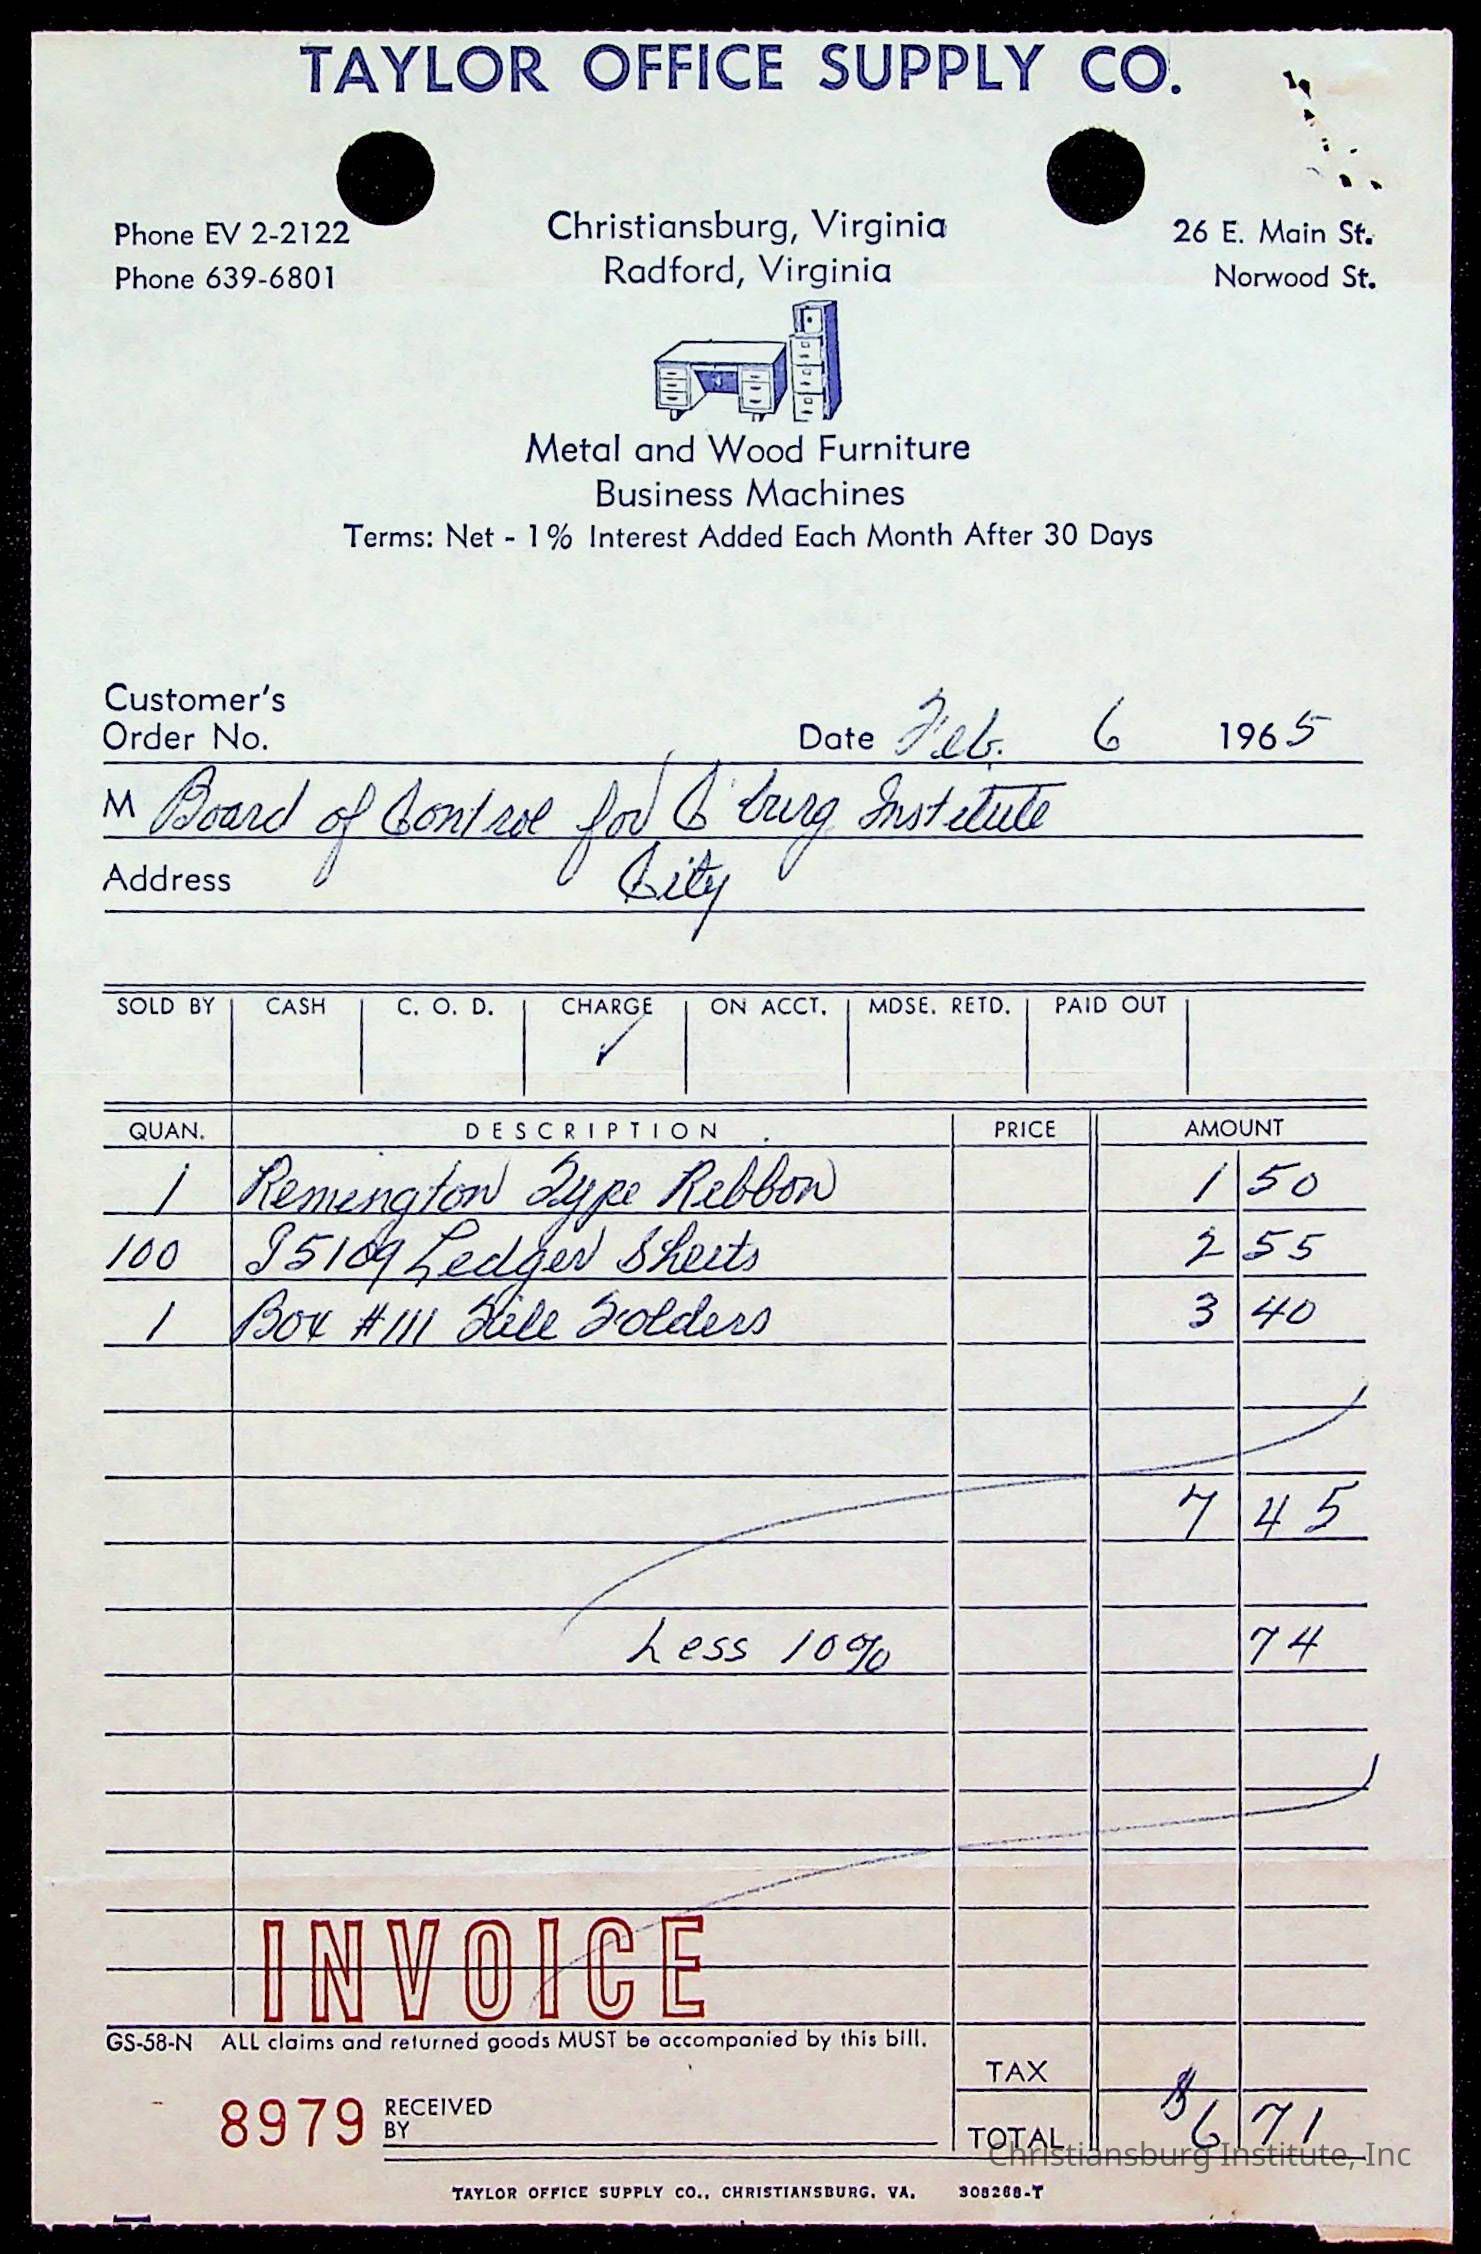 TAYLOR OFFICE SUPPLY CO.
Phone EV 2-2122 Christiansburg, Virginia 26 E. Main St.
Phone 639-6801 Radford, Virginia Norwood St.
Metal and Wood Furniture
Business Machines
Terms: Net - 1% Interest Added Each Month After 30 Days
Customer's
Order No. Date Feb. 6 1965
M Board of Control for C'burg Institute
Address City
SOLD BY CASH C. O. D. CHARGE ON ACCT. MDSE. RETD. PAID OUT
✓
QUAN. DESCRIPTION PRICE AMOUNT
1 Remington Type Ribbon 1 50
100 Ledger Sheets 2 55
1 Box #111 File Folders 3 40
7 45
Less 10% 74
INVOICE
GS-58-N ALL claims and returned goods MUST be accompanied by this bill.
TAX
8979 RECEIVED BY TOTAL $6 71
Christiansburg Institute, Inc
TAYLOR OFFICE SUPPLY CO., CHRISTIANSBURG, VA. 308268-T